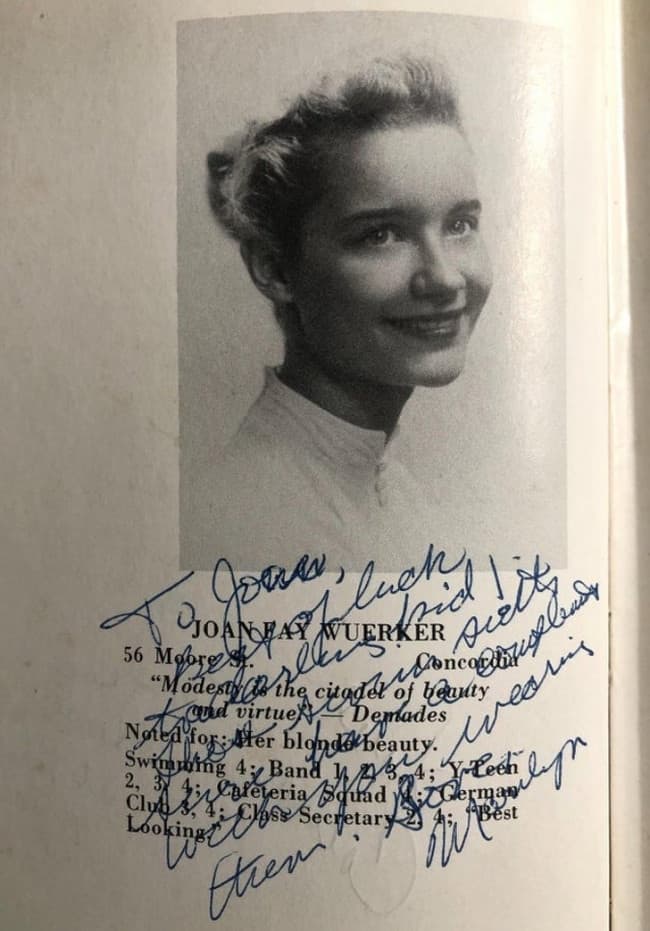 JOAN FAY WUERKER
56 Moore St. Concordia
"Modesty is the citadel of beauty
and virtue." — Demades
Noted for: Her blonde beauty.
Swimming 4; Band 1, 2, 3, 4; Y-Teen
2, 3, 4; Cafeteria Squad 4; German
Club 3, 4; Class Secretary 2, 4; "Best
Looking."
To Joan,
best of luck
to a darling kid!
have a
wearing
them!
Marilyn